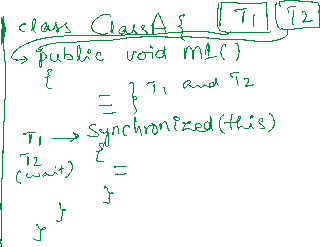 class ClassA { T1 T2
public void M1()
{
} T1 and T2
T1 → Synchronized(this)
T2 {
(wait)
}
}
}